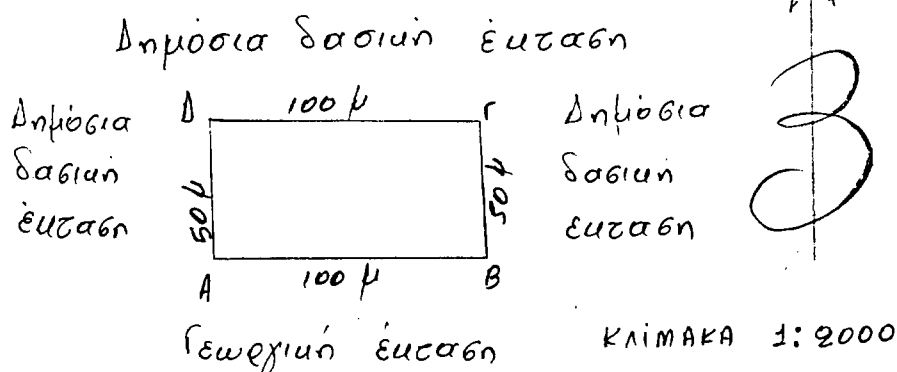 Δημόσια δασική έκταση
3
Δημόσια
δασική
έκταση
Δ 100 μ Γ
50 μ
50 μ
Α 100 μ Β
Δημόσια
δασική
έκταση
Γεωργική έκταση
ΚΛίΜΑΚΑ 1:2000